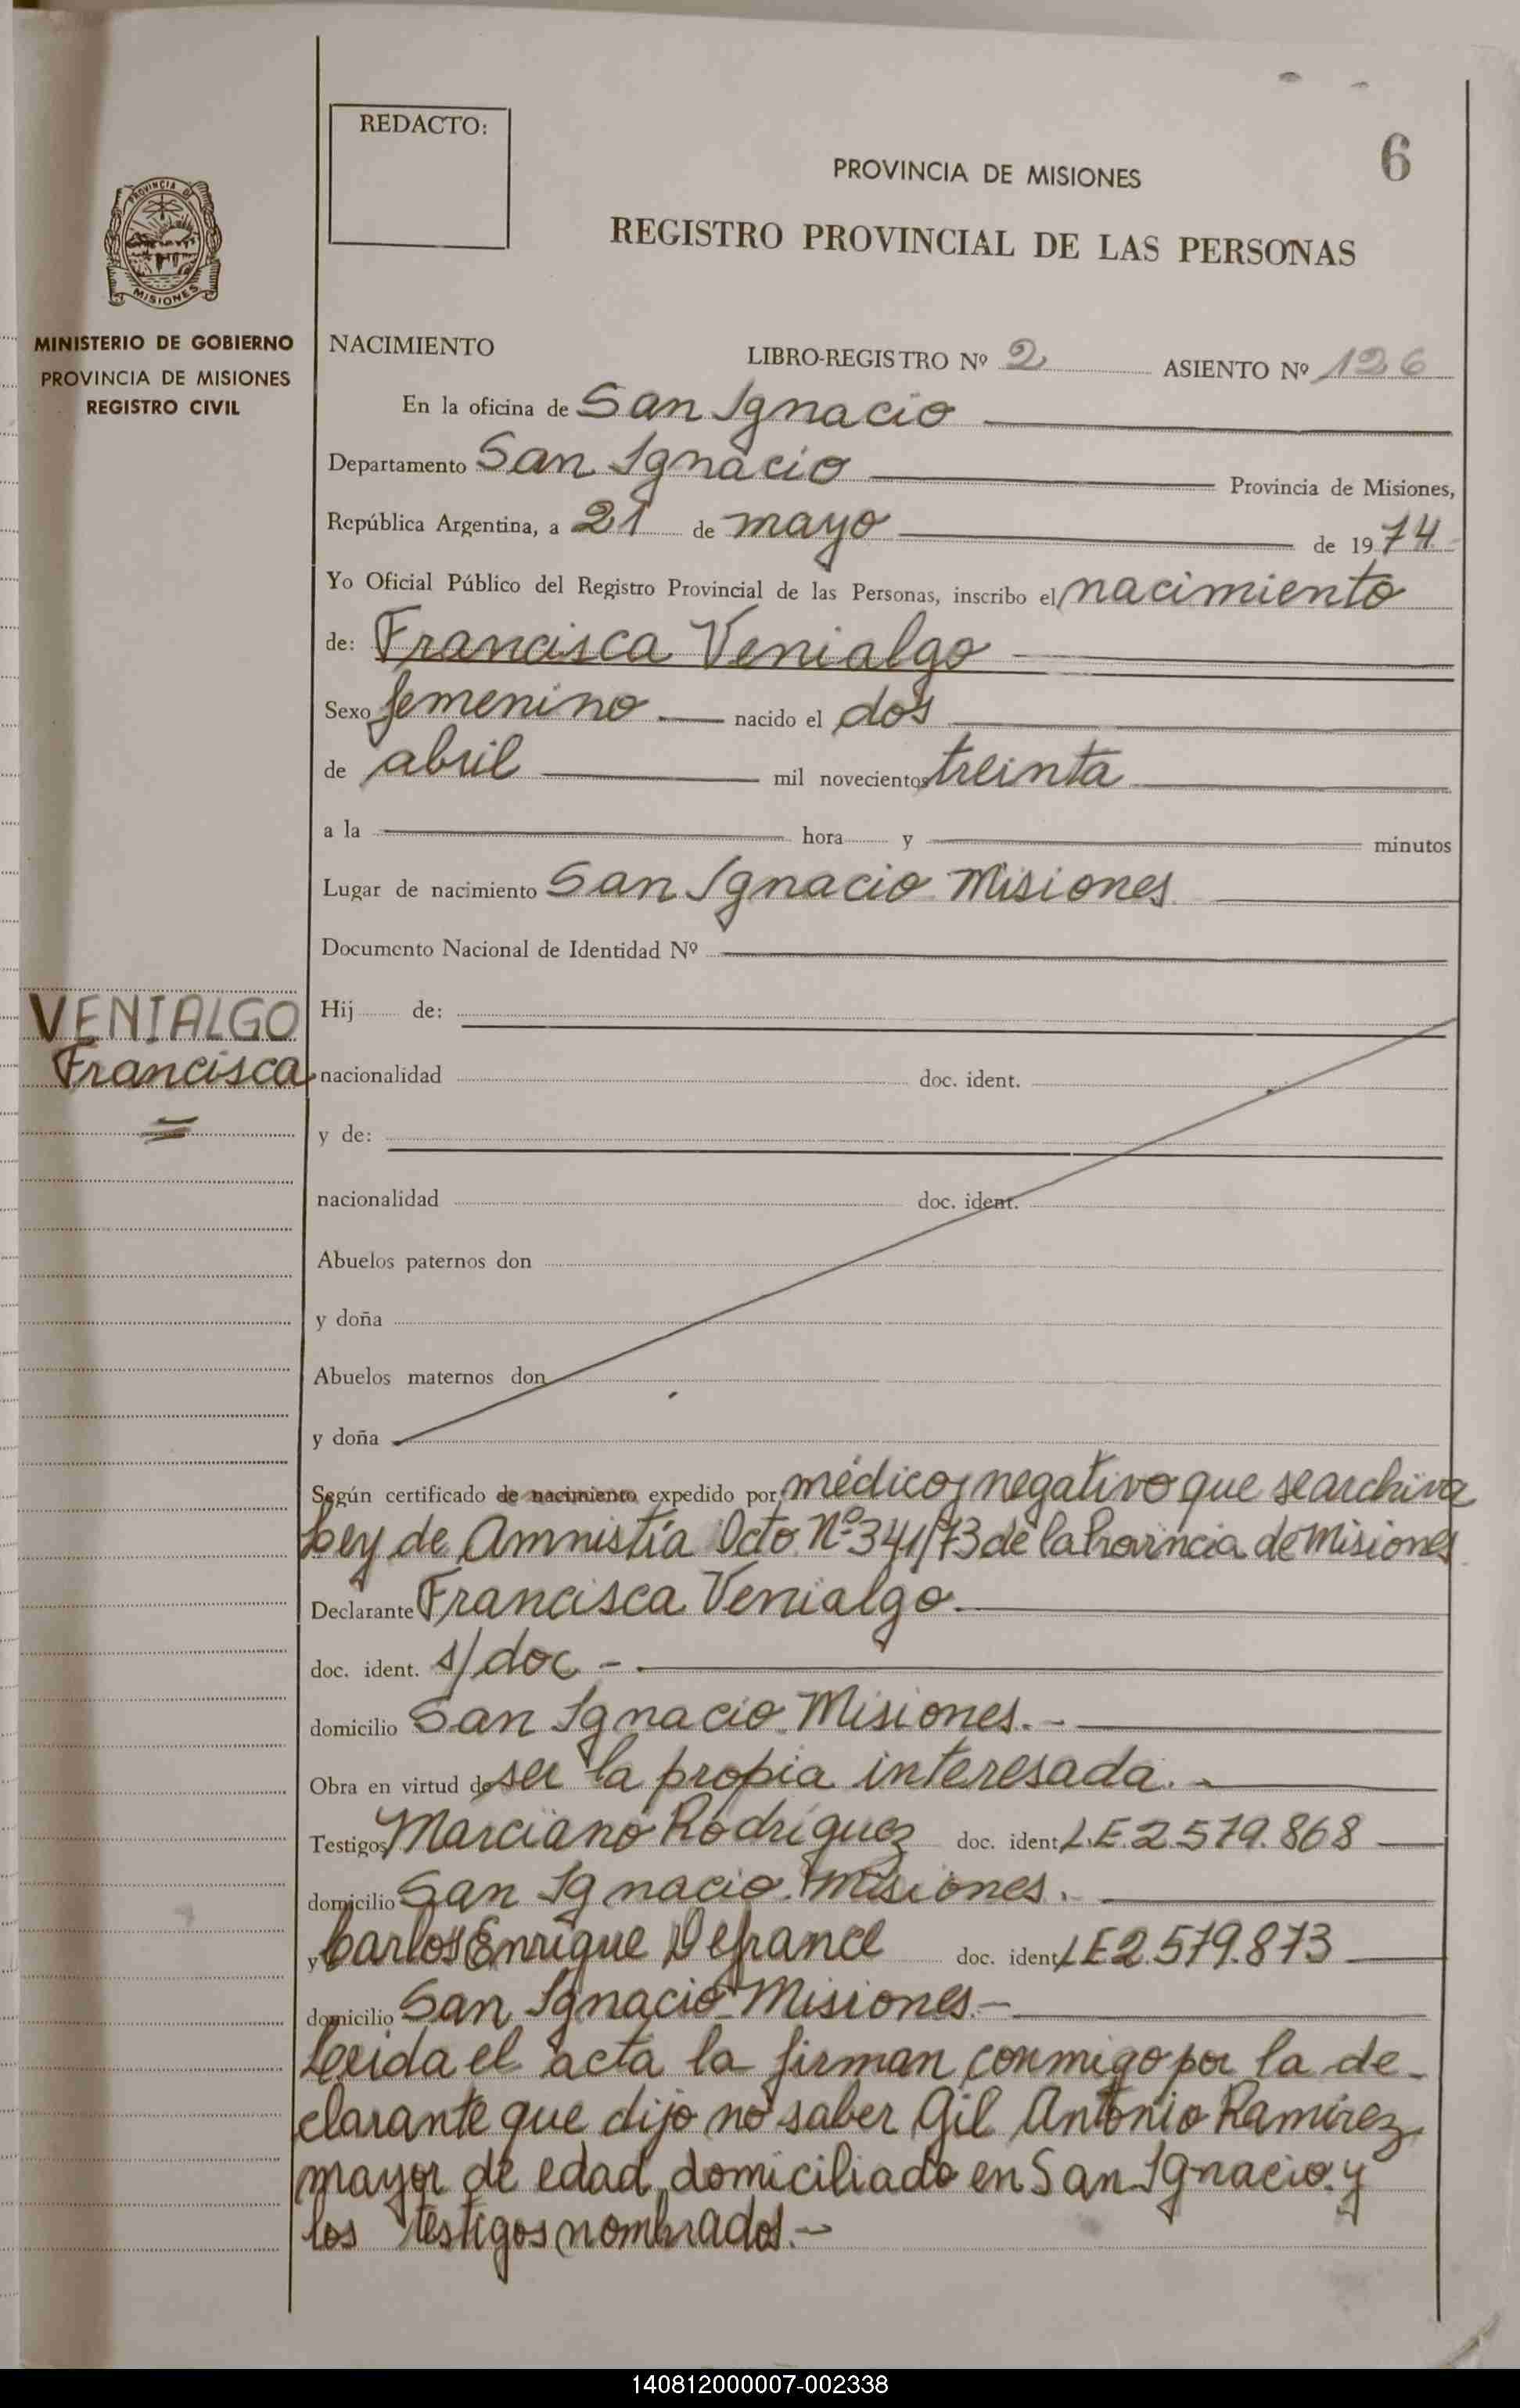 REDACTO:
6
PROVINCIA DE MISIONES
REGISTRO PROVINCIAL DE LAS PERSONAS
PROVINCIA DE
MISIONES
MINISTERIO DE GOBIERNO
PROVINCIA DE MISIONES
REGISTRO CIVIL
NACIMIENTO LIBRO-REGISTRO Nº 2 ASIENTO Nº 126
En la oficina de San Ignacio
Departamento San Ignacio Provincia de Misiones,
República Argentina, a 21 de mayo de 1974
Yo Oficial Público del Registro Provincial de las Personas, inscribo el nacimiento
de: Francisca Venialgo
Sexo femenino nacido el dos
de abril mil novecientos treinta
a la hora y minutos
Lugar de nacimiento San Ignacio Misiones
Documento Nacional de Identidad Nº
VENIALGO
Francisca
Hij de:
nacionalidad doc. ident.
y de:
nacionalidad doc. ident.
Abuelos paternos don
y doña
Abuelos maternos don
y doña
Según certificado de nacimiento expedido por médico y negativo que se archiva
Ley de Amnistía Dcto Nº 341/73 de la Provincia de Misiones
Declarante Francisca Venialgo.
doc. ident. s/doc -.
domicilio San Ignacio Misiones.-
Obra en virtud de ser la propia interesada.-
Testigos Marciano Rodríguez doc. ident. L.E 2.579.868
domicilio San Ignacio. Misiones.
y Carlos Enrique Defrance doc. ident. LE 2.579.873
domicilio San Ignacio Misiones.-
Leeida el acta la firman conmigo por la de-
clarante que dijo no saber Gil Antonio Ramirez
mayor de edad, domiciliado en San Ignacio. y
los testigos nombrados.-
140812000007-002338